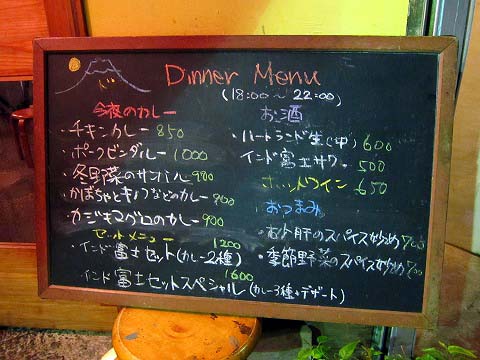 Dinner Menu
(18:00〜22:00)
今夜のカレー
・チキンカレー 850
・ポークビンダルー 1000
・冬野菜のサンバル 900
・かぼちゃとキノコなどのカレー 900
・カジキマグロのカレー 900
セットメニュー
・インド富士セット(カレー2種) 1200
・インド富士セットスペシャル(カレー3種+デザート) 1600
お酒
・ハートランド生(中) 600
インド富士サワー 500
ワイン 650
おつまみ
・お少肝のスパイス炒め 700
・季節野菜のスパイス炒め 700